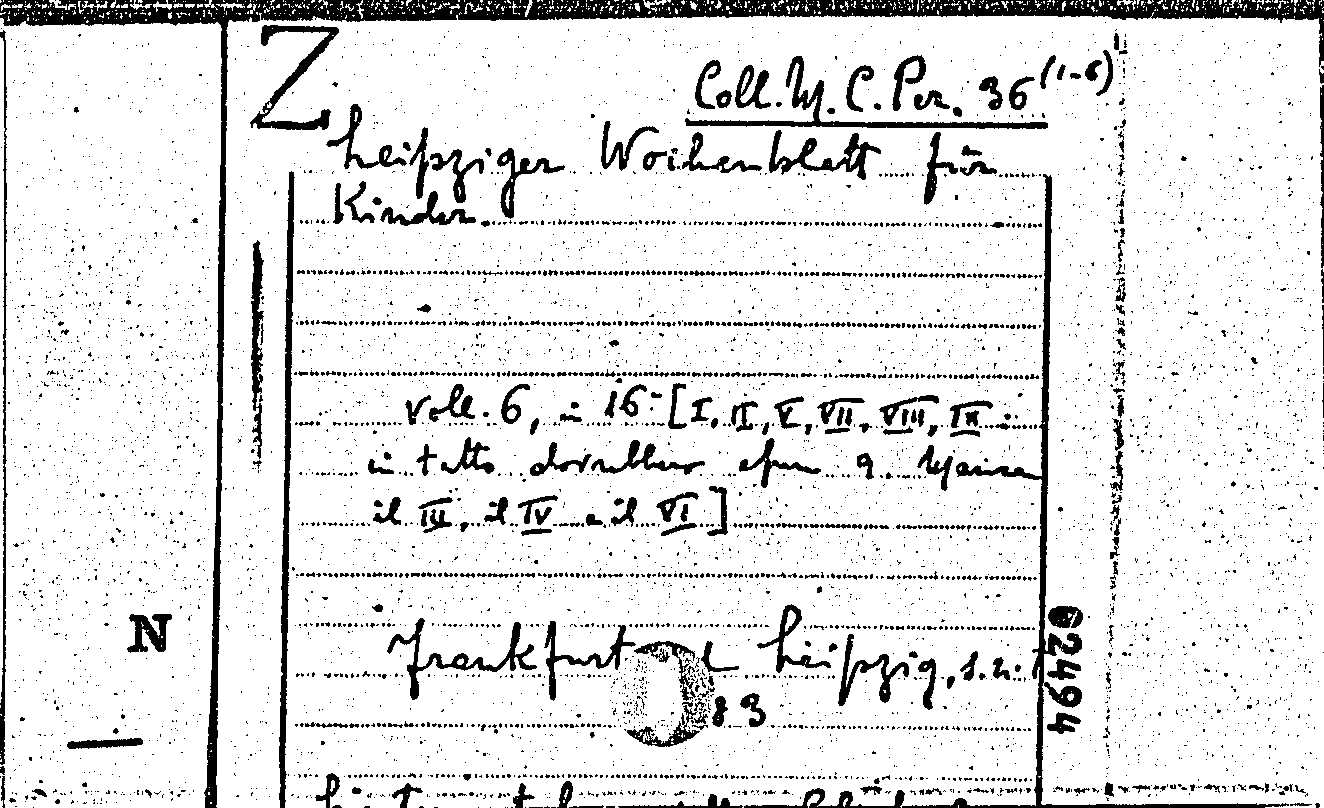 Z
Coll. M. C. Per. 36 (1-6)
Leipziger Wochenblatt für
Kinder.
voll. 6, in 16° [I, II, V, VII, VIII, IX:
in tutto dovrebbero essere 9. Mancano
il III, il IV e il VI]
Frankfurt Leipzig, s.n.
83
N
62494